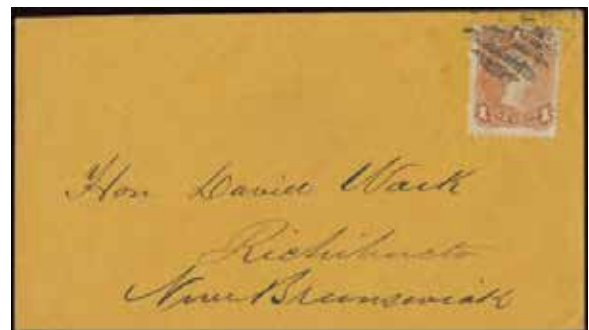 1 1
Hon David Wark
Richibucto
New Brunswick